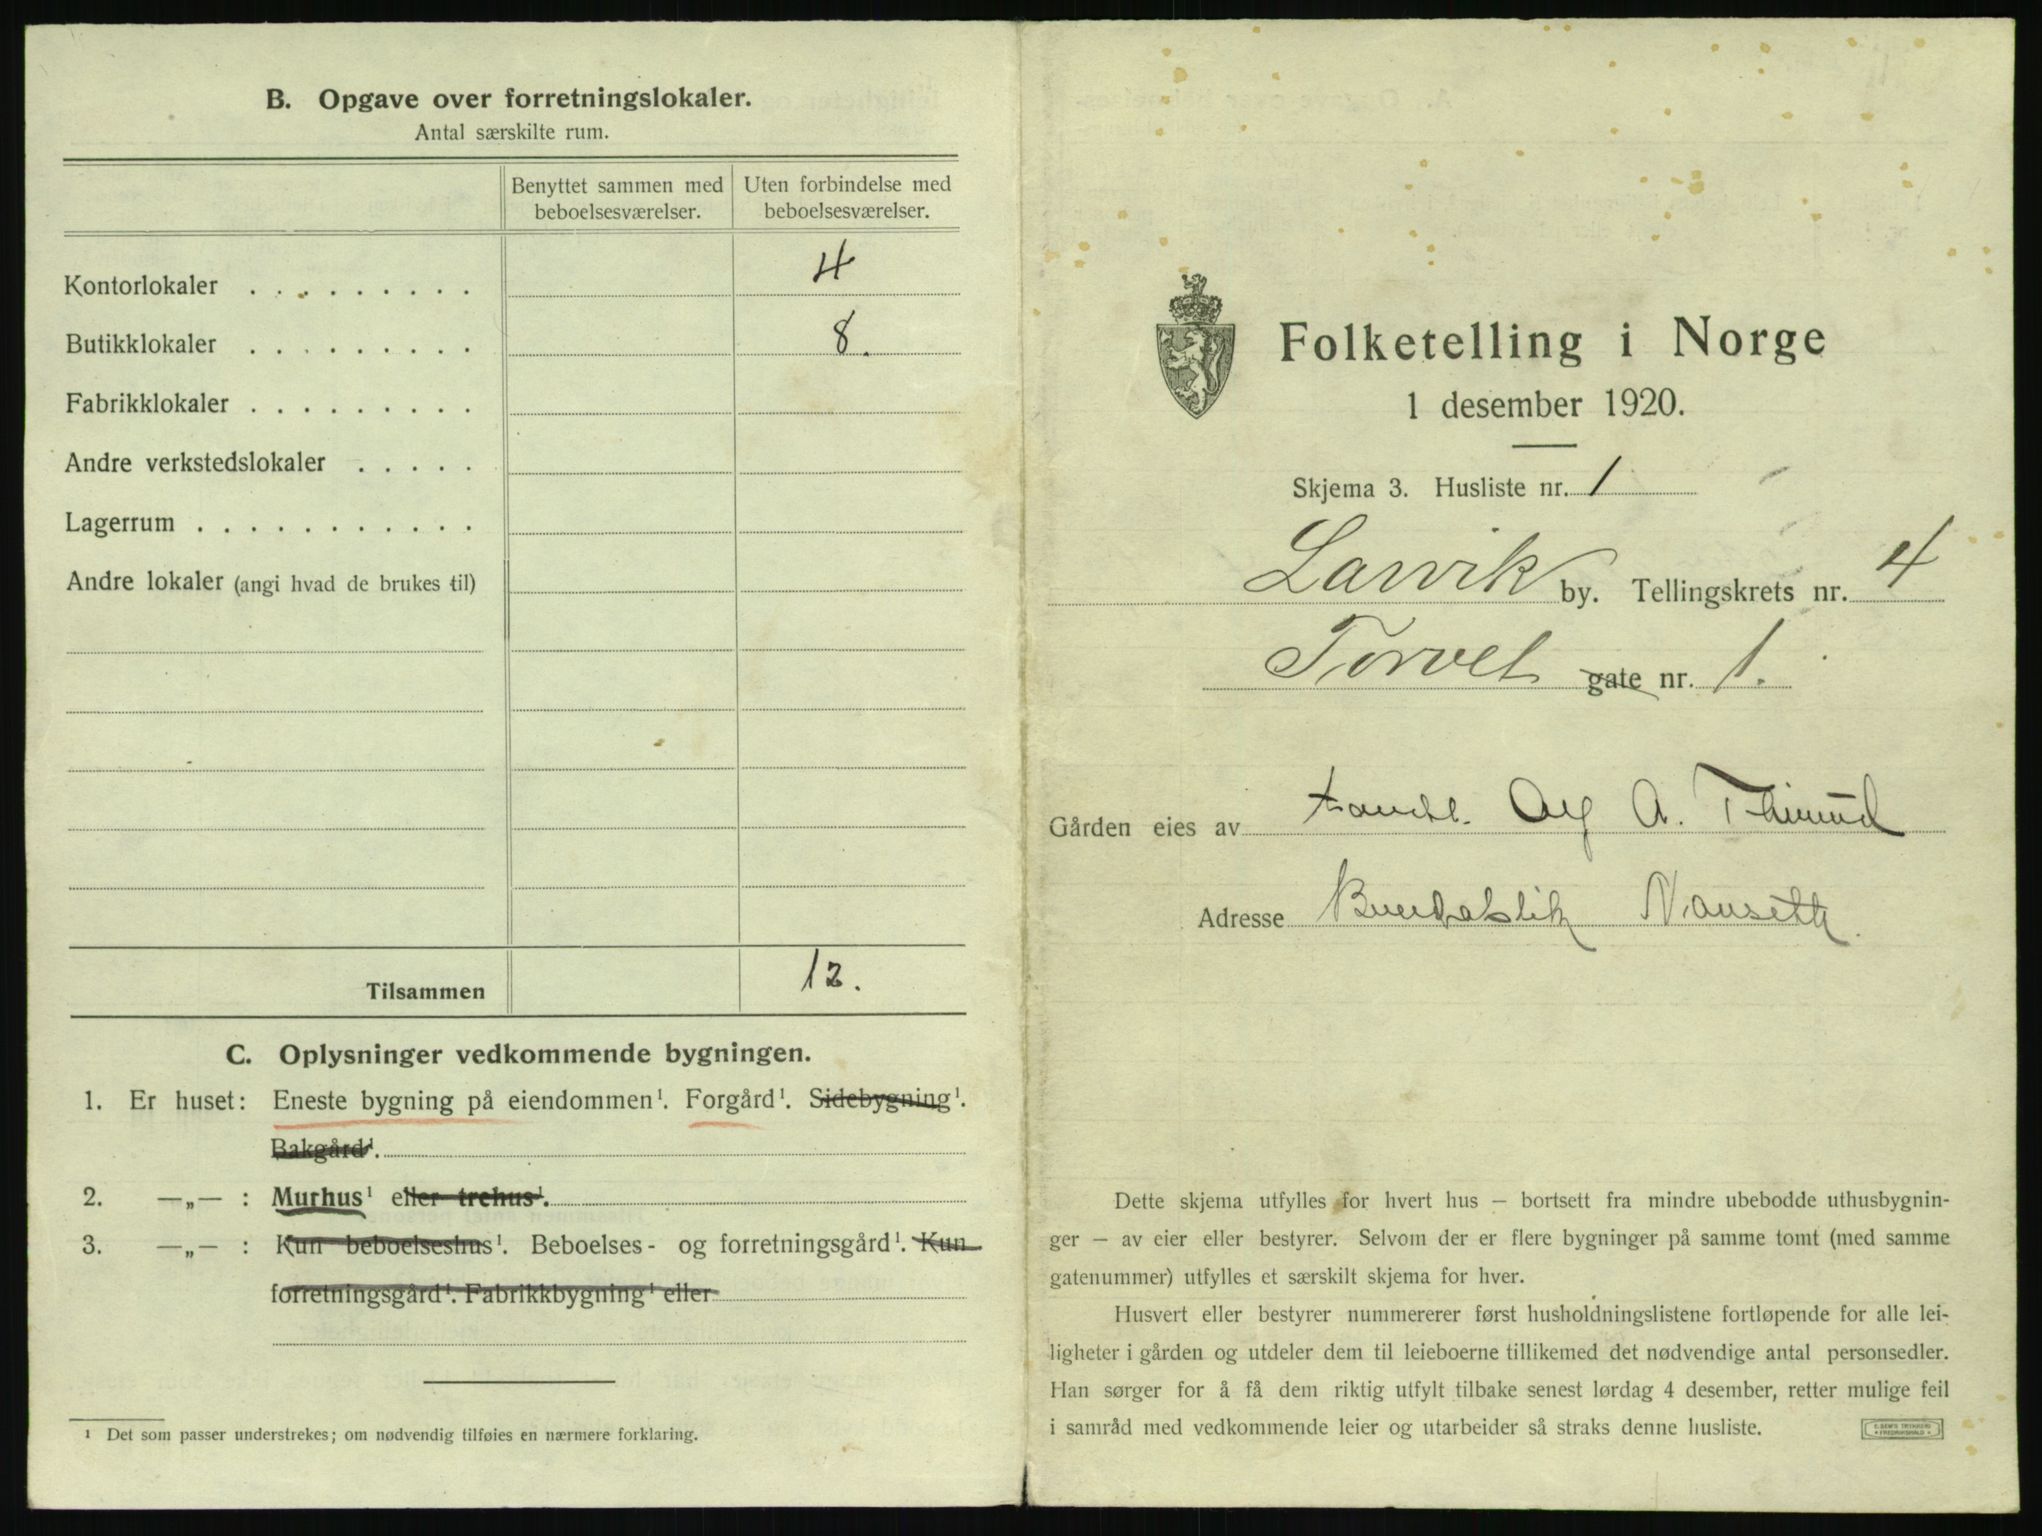 B. Opgave over forretningslokaler.
Antal særskilte rum.
Benyttet sammen med beboelsesværelser.
Uten forbindelse med beboelsesværelser.
Kontorlokaler . . . . . . . . . 4
Butikklokaler . . . . . . . . . 8.
Fabrikklokaler . . . . . . . . .
Andre verkstedslokaler . . . . .
Lagerrum . . . . . . . . . . .
Andre lokaler (angi hvad de brukes til)
Tilsammen 12.
C. Oplysninger vedkommende bygningen.
1. Er huset: Eneste bygning på eiendommen¹. Forgård¹. Sidebygning¹.
Bakgård¹.
2. —„— : Murhus¹ eller trehus¹.
3. —„— : Kun beboelseshus¹. Beboelses- og forretningsgård¹. Kun
forretningsgård¹. Fabrikkbygning¹ eller
¹ Det som passer understrekes; om nødvendig tilføies en nærmere forklaring.
Folketelling i Norge
1 desember 1920.
Skjema 3. Husliste nr. 1
Larvik by. Tellingskrets nr. 4
Torvet gate nr. 1.
Gården eies av A.
Adresse
Dette skjema utfylles for hvert hus – bortsett fra mindre ubebodde uthusbygnin-
ger – av eier eller bestyrer. Selvom der er flere bygninger på samme tomt (med samme
gatenummer) utfylles et særskilt skjema for hver.
Husvert eller bestyrer nummererer først husholdningslistene fortløpende for alle lei-
ligheter i gården og utdeler dem til leieboerne tillikemed det nødvendige antal personsedler.
Han sørger for å få dem riktig utfylt tilbake senest lørdag 4 desember, retter mulige feil
i samråd med vedkommende leier og utarbeider så straks denne husliste.